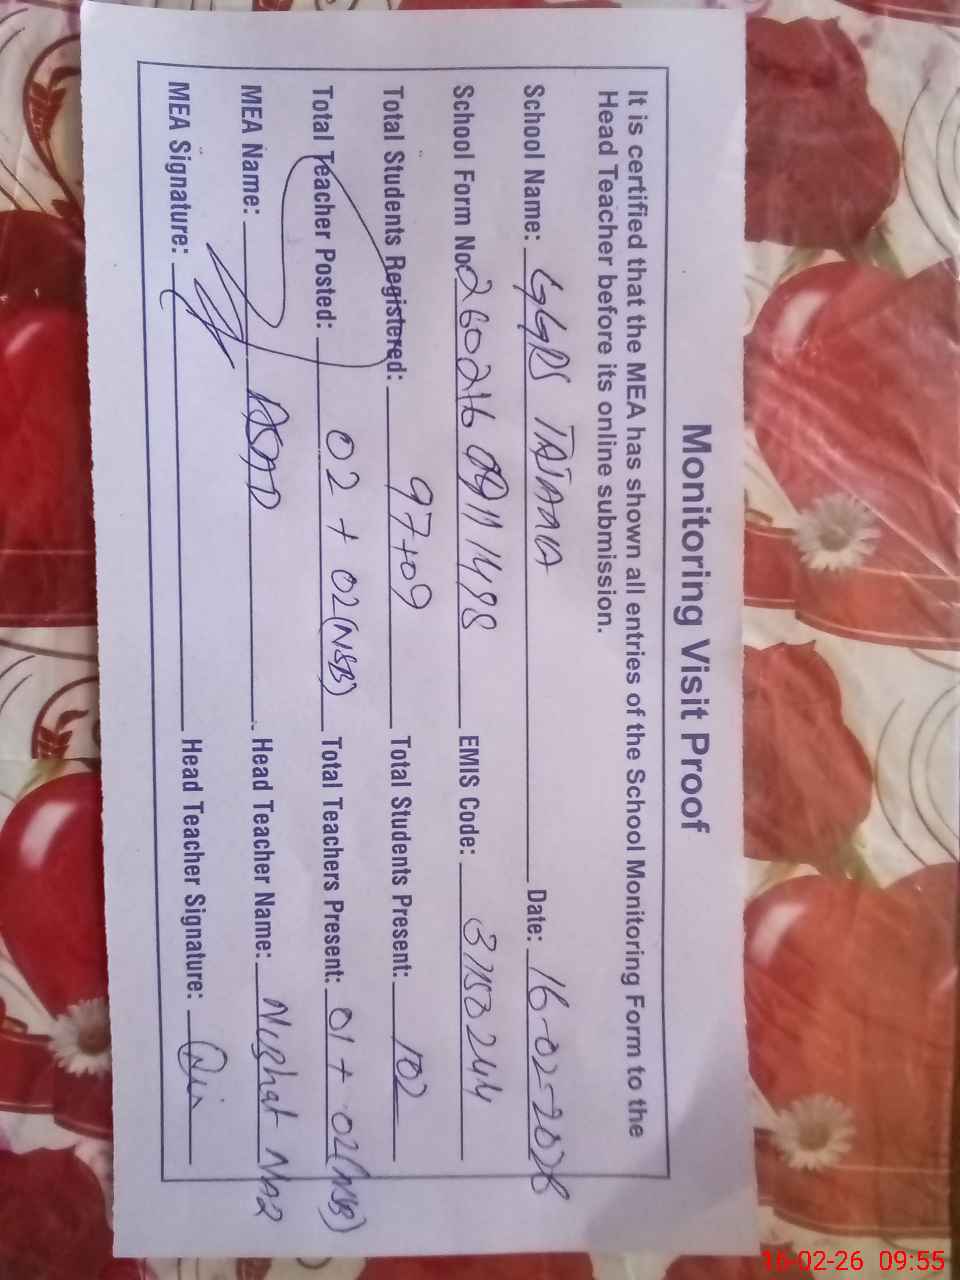 Monitoring Visit Proof
It is certified that the MEA has shown all entries of the School Monitoring Form to the
Head Teacher before its online submission.
School Name: GGPS Date: 16-02-2026
School Form No. 260216 0911 1498 EMIS Code: 37150244
Total Students Registered: 97+09 Total Students Present: 102
Total Teacher Posted: 02 + 02(NSB) Total Teachers Present: 01 + 02(NSB)
MEA Name: ASAD Head Teacher Name: Nighat Naz
MEA Signature: Head Teacher Signature:
16-02-26 09:55